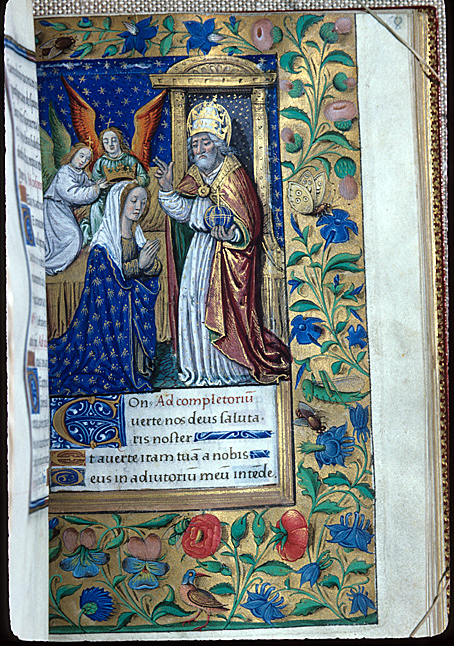 On. Ad completoriū
C uerte nos deus saluta-
ris noster
Et auerte iram tuā a nobis
Deus in adiutoriū meū intēde.